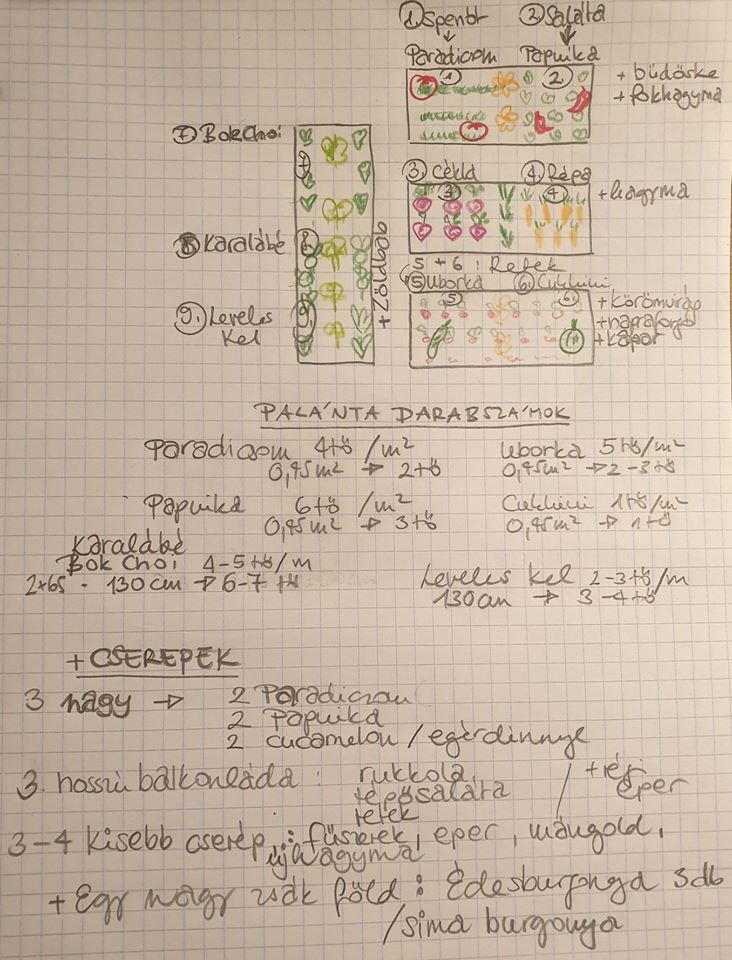 1. Spenót 2. Saláta
Paradicsom Paprika
1 2
+ büdöske
+ fokhagyma
7. Bok Choi
7
3. Cékla 4. Répa
3 4
+ hagyma
8. Karalábé
8
+ Zöldbab
5 + 6 : Retek
5. Uborka 6. Cukkini
5 6
+ körömvirág
+ napraforgó
+ kapor
9. Leveles
Kel
9
PALÁNTA DARABSZÁMOK
Paradicsom 4tő /m²
0,45m² → 2tő
Uborka 5tő/m²
0,45m² → 2-3tő
Paprika 6tő /m²
0,45m² → 3tő
Cukkini 1tő/m²
0,45m² → 1tő
Karalábé
Bok Choi 4-5tő/m
2×65 - 130cm → 6-7 tő
Leveles Kel 2-3tő/m
130cm → 3-4tő
+ CSEREPEK
3 nagy → 2 Paradicsom
2 Paprika
2 cucamelon / egérdinnye
3 hosszú balkonláda : rukkola,
tépősaláta
retek
/ + téli
eper
3-4 Kisebb cserép : fűszerek, eper, mángold,
újhagyma
+ Egy nagy zsák föld : Édesburgonya 3db
/sima burgonya